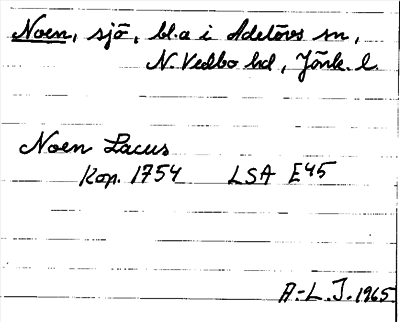 Noen, sjö, bl.a i Adelövs sn,
N. Vedbo hd, Jönk. l.
Noen Lacus
Kop. 1754 LSA E45
A.-L. J. 1965